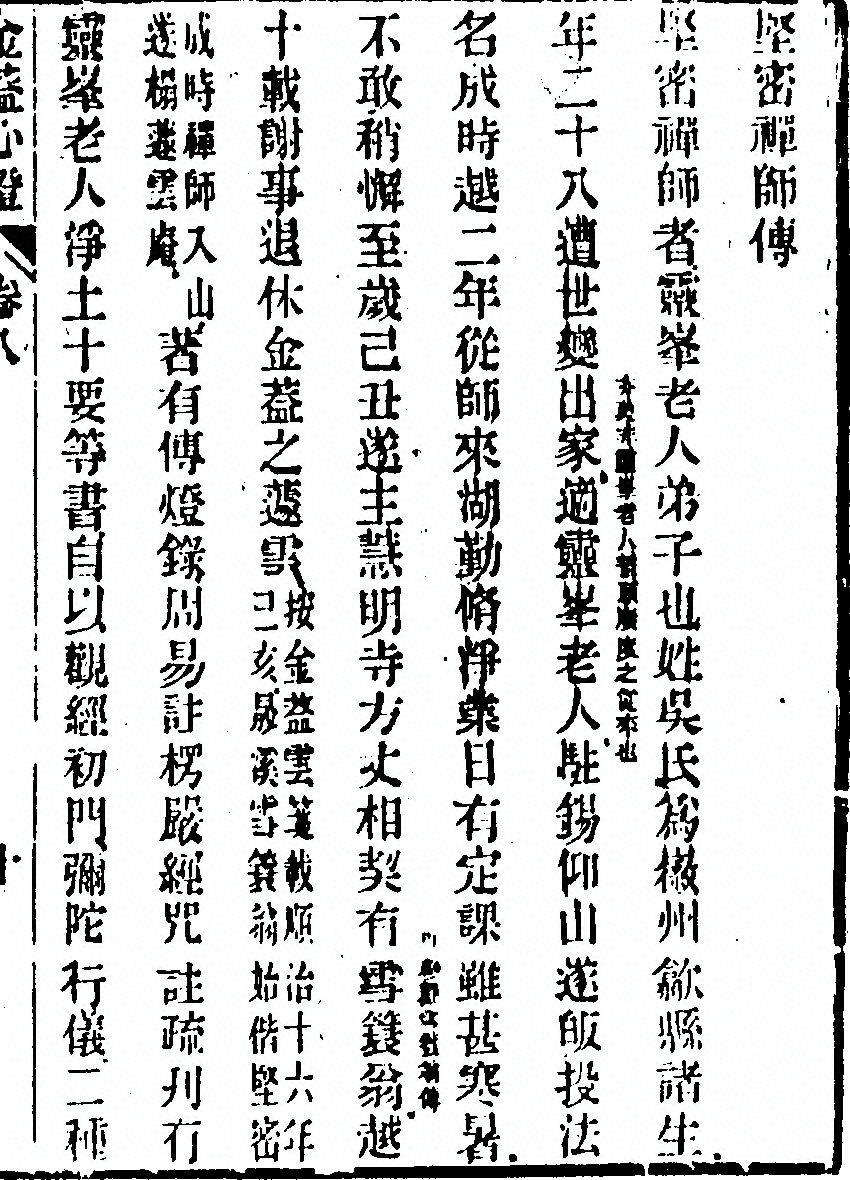 堅密禪師傳
堅密禪師者靈峯老人弟子也姓吳氏為徽州歙縣諸生
年二十八遭世變出家適靈峯老人駐錫仰山遂皈投法
名成時越二年從師來湖勤脩淨業日有定課雖甚寒暑
不敢稍懈至歲己丑遂主慧明寺方丈相契有雪簑翁越
十載謝事退休金葢之蘧雲
按金葢雲箋載順治十六年
己亥晟溪雪簑翁始偕堅密
成時禪師入山
遂榻蘧雲庵
著有傳燈錄周易註楞嚴經咒註疏刋有
靈峯老人淨土十要等書自以觀經初門彌陀行儀二種
金葢心燈
卷八